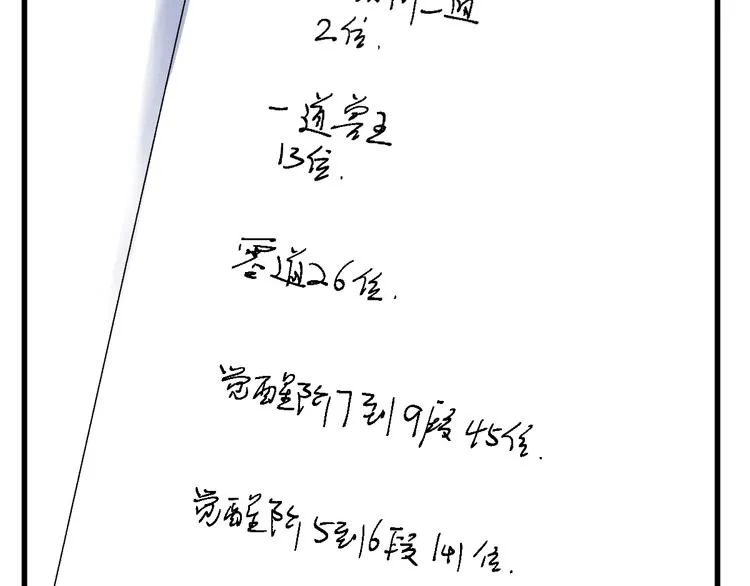 二道
2位.
一道兽王
13位.
零道26位.
觉醒阶7到9段45位.
觉醒阶5到6段141位.